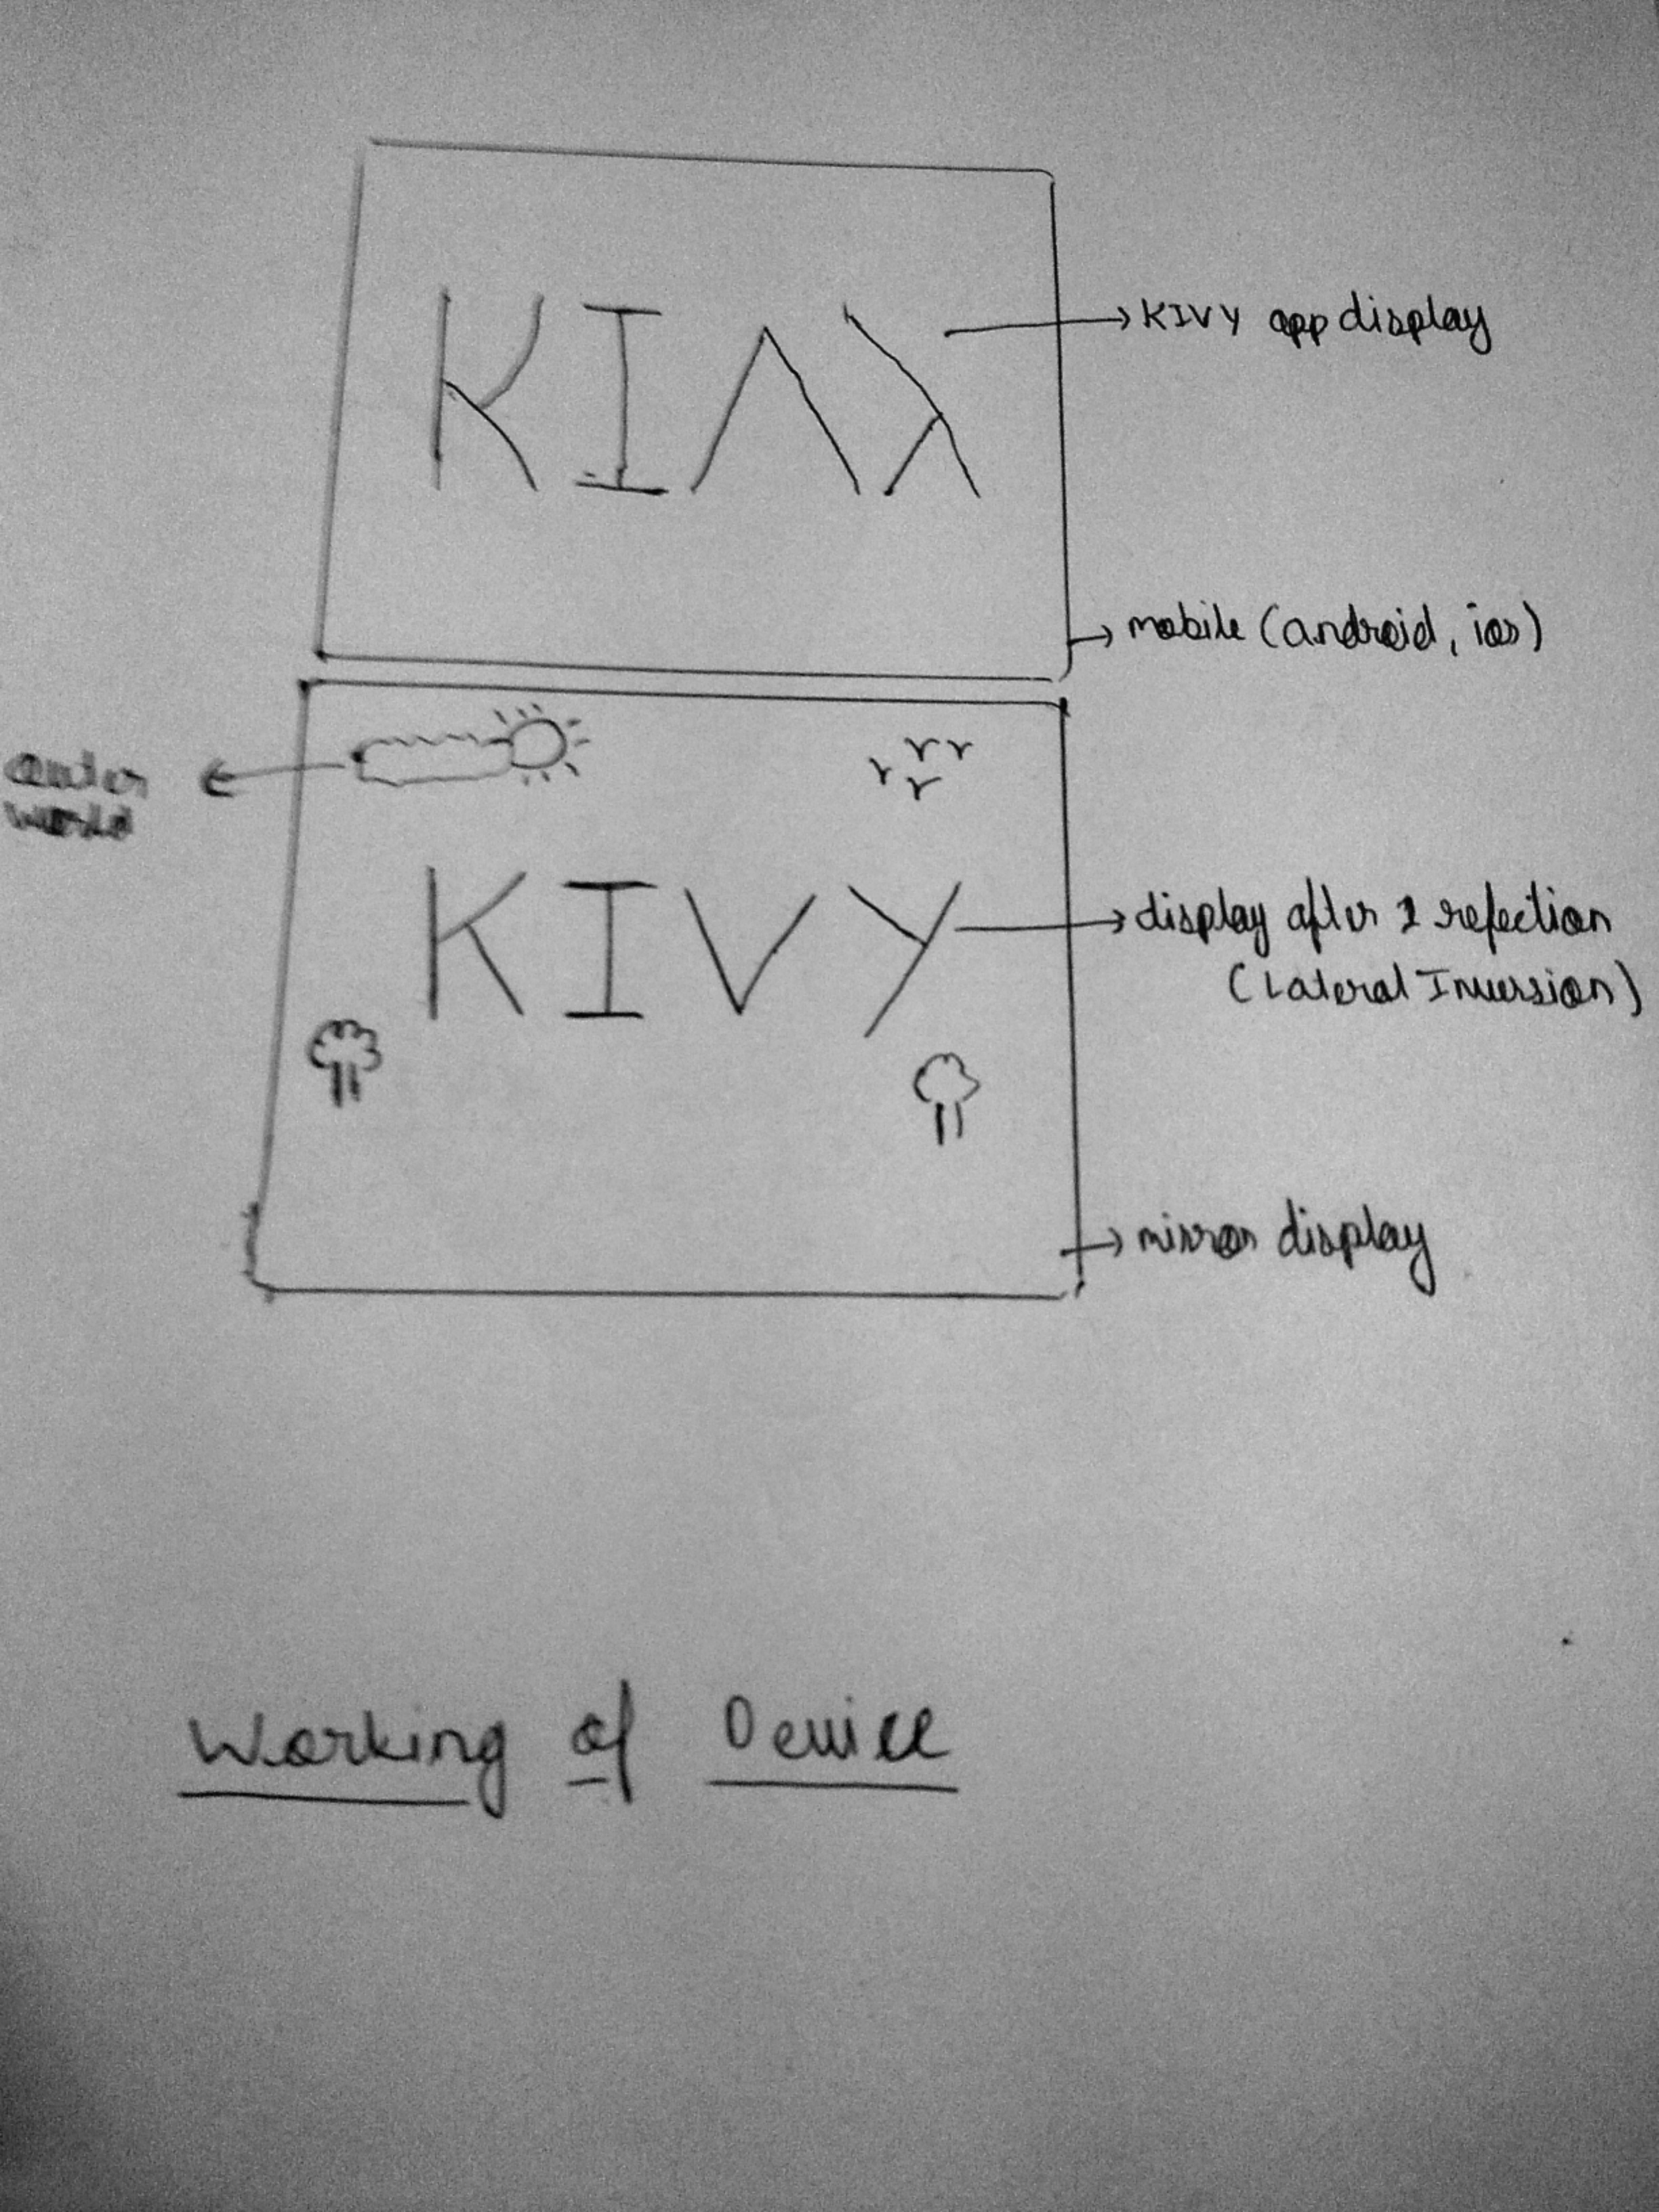 KIΛ⅄
→ KIVY app display
→ mobile (android, ios)
outer
world
KIVY
→ display after 1 refection
(Lateral Inversion)
→ mirror display
Working of Device